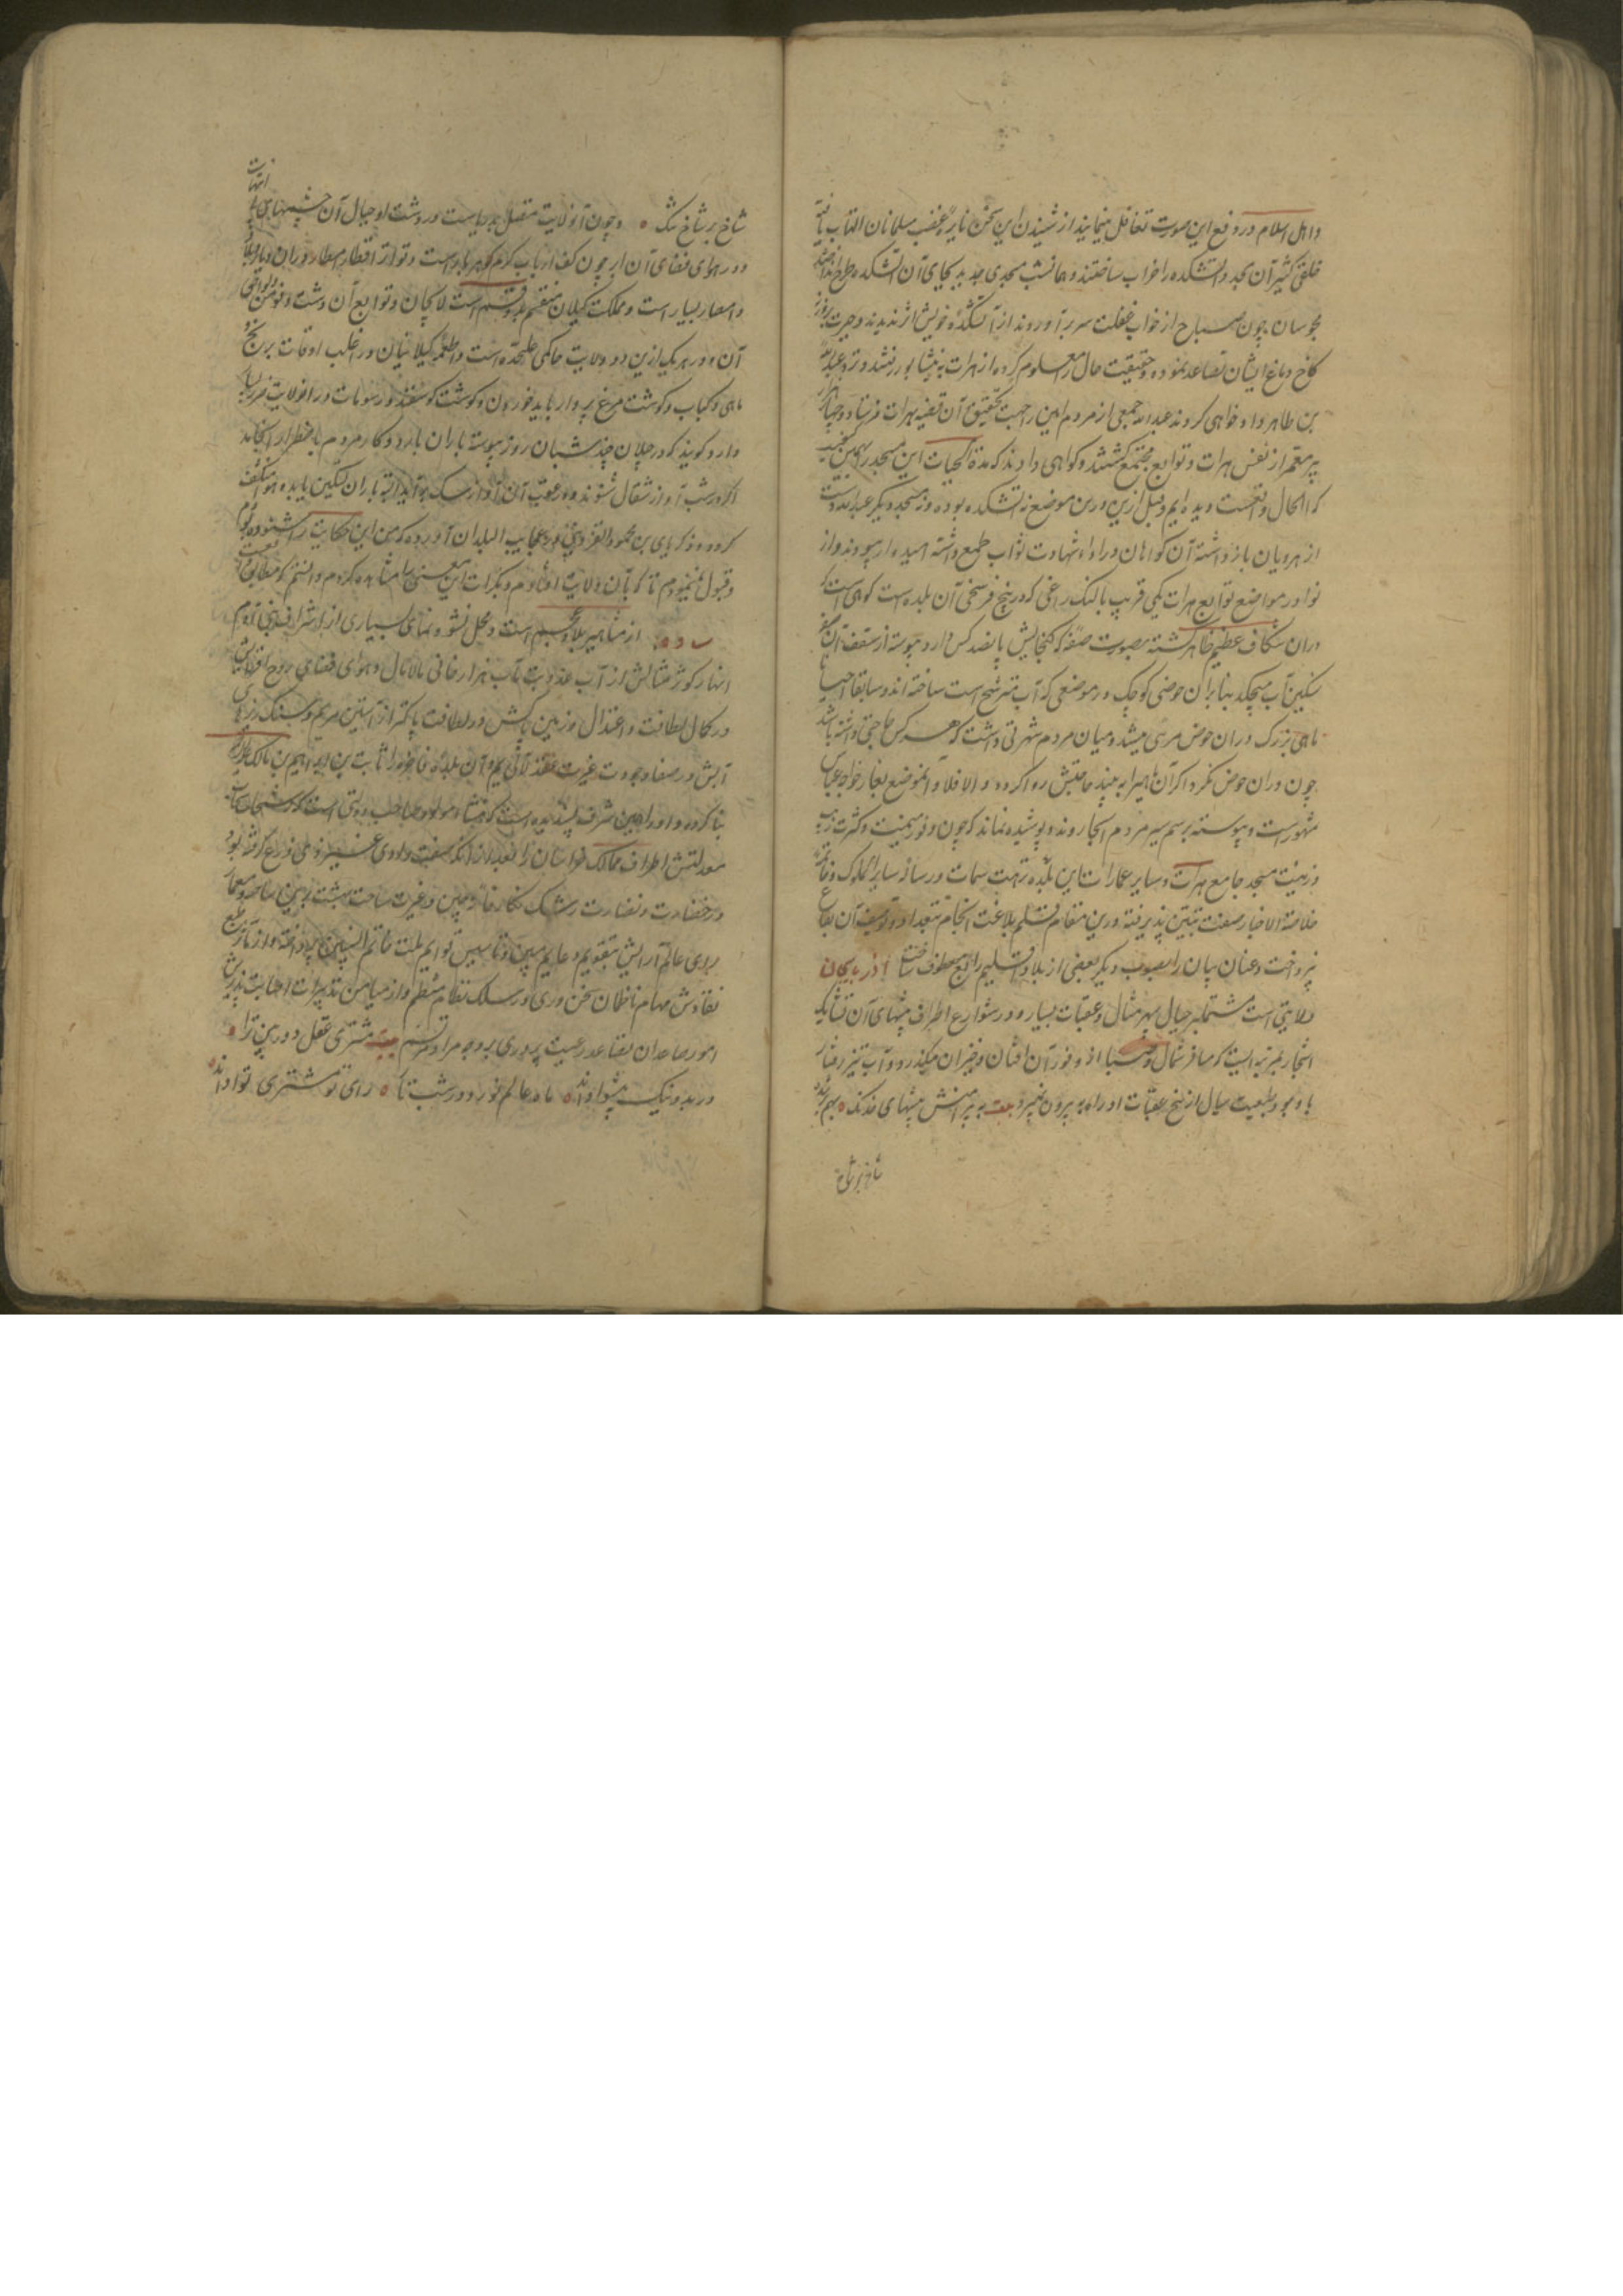 و اهل اسلام در دفع این صورت تغافل مینمایند از شنیدن این سخن نایره غضب مسلمانان التهاب یافته
خلقی کثیر آن مسجد و آتشکده را خراب ساختند و همانشب مسجدی جدید بجای آن آتشکده طرح انداختند
مجوسان چون صباح از خواب غفلت سر برآوردند از آتشکده خویش اثر ندیدند و حیرت بروزن
کاخ دماغ ایشان تصاعد نموده و حقیقت حال معلوم کرده از هرات به نیشابور رفتند و نزد عبدالله
بن طاهر دادخواهی کردند عبدالله جمعی از مردم امین را جهت تحقیق آن قضیه بهرات فرستاد و چهار هزار
پیر معمر از نفس هرات و توابع مجتمع گشتند و گواهی دادند که مدة الحیات این مسجد را بهمین
که الحال واقعست دیده‌ایم و قبل ازین درین موضع نه آتشکده بوده و نه مسجد دیگر عبدالله دست
از هرویان باز داشته آن گواهان در اداء شهادت ثواب طمع داشته امیدوار بودند و از
نوادر مواضع توابع هرات یکی قریب بالنگ که در پنج فرسخی آن بلده است کوهی است که
در آن شکاف عظیم ظاهر گشته بصورت صفه که گنجایش پانصد کس دارد و پیوسته از سقف آن
سنگین آب میچکد بنابر آن حوضی کوچک در موضعی که آب مترشح است ساخته‌اند و سابقا احیانا
ماهی بزرگ در آن حوض مرئی میشد و میان مردم شهرتی داشت که هر کس حاجتی داشته باشد
چون در آن حوض نگرد اگر آن ماهی را به بیند حاجتش روا گردد و الا فلا و آنموضع بغار خواجه
مشهور است و پیوسته برسم سیر مردم آنجا روند و پوشیده نماند که چون وفور میمنت و کثرت زیب
و زینت مسجد جامع هرات و سایر عمارات این بلده نزهت سمات در رساله سایر الملوک و خاتمه
خلاصة الاخبار صفت تبیین پذیرفته درین مقام قلم بلاغت انجام بتعداد و توصیف آن بقاع
نپرداخت و عنان بیان را بصوب دیگر بعضی از بلاد اقلیم رابع معطوف ساخت اذربایجان
ولایتی است مشتمل بر جبال سپهر مثال و عقبات بسیار و در شوارع اطراف بیشهای آن تشابک
اشجار بمرتبه‌ایست که مسافر شمال و صبا از وفور آن افتان و خیزان میگذرد و آب تیز رفتار
با وجود طبیعت سیال از پیچ عقبات او راه به بیرون نمیبرد بیت به پیرامنش بیشهای خدنگ ه بهم بر شده
شاخ بر شاخ
شاخ بر شاخ تنگ ه و چون آنولایت متصل بدریاست در دشت او جبال آن چشمهای بی
انتهاست
و در هوای فضای آن ابر چون کف ارباب کرم گوهربار است و تواتر اقطار امطار در آن دیار
و امصار بسیار است و مملکت گیلان منقسم بدو قسم است لاهجان و توابع آن و رشت و فومن و نواحی
آن و در هر یک ازین دو ولایت حاکمی علیحده است و اطعمه گیلانیان در اغلب اوقات برنج و
ماهی و کباب و گوشت مرغ پروار باید خوردن و گوشت گوسفند و رسومات در آنولایت ضرر بسیار
دارد و گویند که در جیلان چند شبان روز پیوسته باران بارد و کار مردم باضطرار انجامد
اگر در شب آواز شغال شنوند و در عقب آن آواز سگ بر آید البته باران تسکین یابد و هوا منکشف
گردد و زکریای بن محمود القزوینی در عجایب البلدان آورده که من این حکایت را شنوده بودم
و قبول نمینمودم تا گذر بآن ولایت افتادم و بکرات این معنی را مشاهده کردم و دانستم که مطابق
ساوه از مشاهیر بلاد عجم است و محل نشو و نمای بسیاری از اشراف بنی آدم
انهار کوثر مثالش از آب عذوبت مآب هزار خانی مالامال و هوای فضای روح افزایش
در کمال لطافت و اعتدال و زمین پاکش در لطافت پاکتر از آستین مریم و سنگ ریزهای
آبش در صفا و جودت غیرت عقد لآلی یتیم و آن بلده فاخره را ثابت بن ابراهیم بن مالک
بنا کرده و او را همین شرف پسندیده است که منشاء و مولد صاحب دولتی است که رشحات سحاب
معدلتش اطراف ممالک خراسان را بعد از آنکه صفت وادی غیر ذی زرع گرفته بود
در خضارت و نضارت رشک نگارخانه چین و غیرت ساحت بهشت برین ساخته و معمار
رای عالم آرایش بتقویم دعایم مبین و تاسیس قوایم ملت خاتم النبیین پرداخته و از مآثر طبع
نقادش مهام ناظمان سخن وری در سلک نظام منتظم و از میامن تدبیرات اصابت پذیرش
امور حامدان بقاعد رعیت پروری بر وجه مراد مرتسم بیت مشتری عقل دوربین ترا ه
در بد و نیک پیشوا داند ه ماه عالم فروز در شب تار ه رای تو مشتری توا داند ه